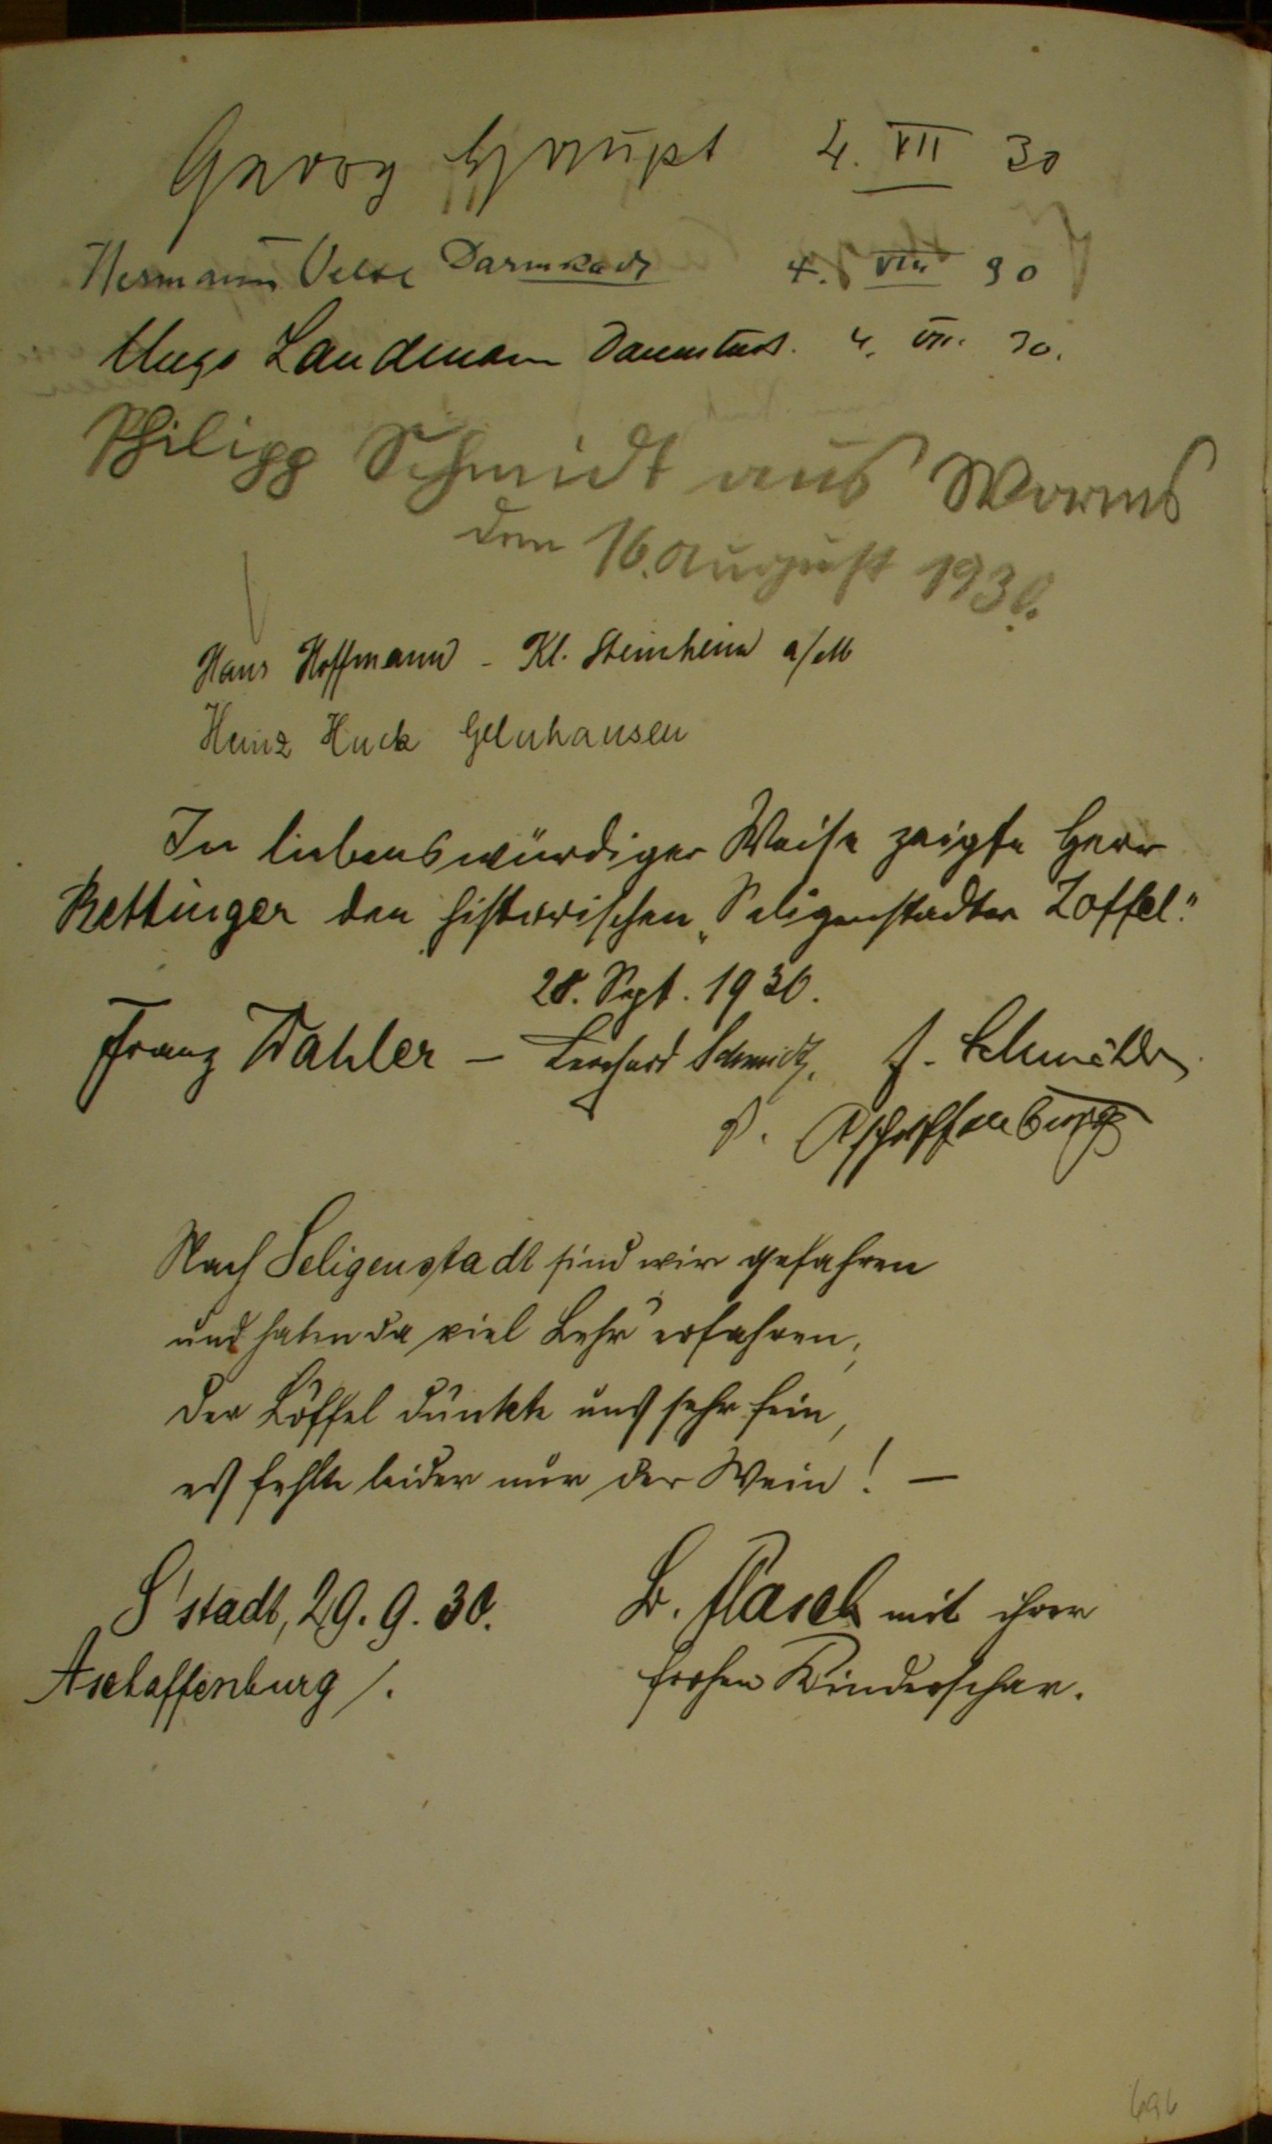 Georg Haupt 4. VII 30
Hermann Velte Darmstadt 4. VIII 30
Hugo Landmann Darmstadt. 4. VII. 30.
Philipp Schmidt aus Worms
den 16. August 1930.
Hans Hoffmann - Kl. Steinheim a/M
Heinz Huck Gelnhausen
In liebenswürdiger Weise zeigte Herr
Rettinger den historischen „Seligenstadter Löffel."
28. Sept. 1930.
Franz Wahler - Leonhard Schmidt, J.
v. Aschaffenburg
Nach Seligenstadt sind wir gefahren
und haben da viel Lehr' erfahren;
der Löffel dünkte uns sehr fein,
es fehlte leider nur der Wein! —
S'stadt, 29. 9. 30. B. Flasch mit ihrer
Aschaffenburg /. frohen Kinderschar.